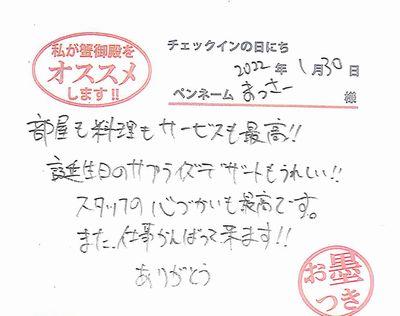 私が蟹御殿を
オススメ
します!!
チェックインの日にち
2022年1月30日
ペンネーム まっさー 様
部屋も料理もサービスも最高!!
誕生日のサプライズデザートもうれしい!!
スタッフの心づかいも最高です。
また、仕事がんばって来ます!!
ありがとう
お墨
つき